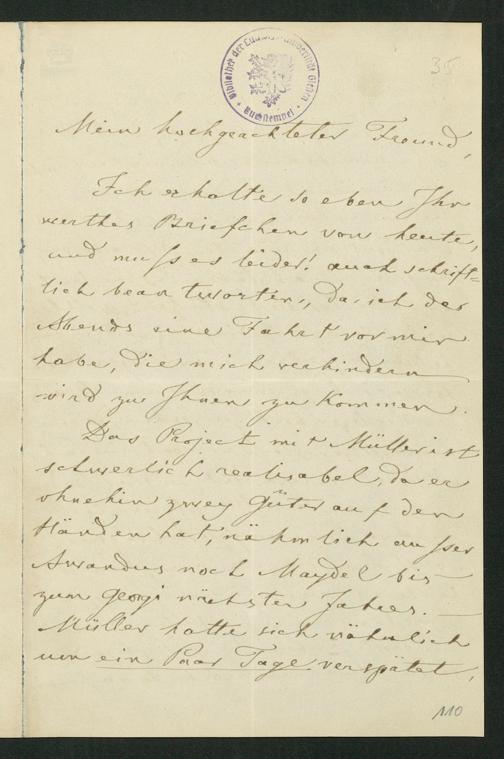 Bibliothek der Ludwigs-Universität Gießen
Buchstempel
35
Mein hochgeachteter Freund,
Ich erhalte so eben Ihr
werthes Briefchen von heute,
und muss es leider! auch schrift=
lich beantworten, da ich des
Abends eine Fahrt vor mir
habe, die mich verhindern
wird zu Ihnen zu kommen.
Das Project mit Müller ist
schwerlich realisabel, da er
ohnehin zwey Güter auf den
Händen hat, nähmlich ausser
Awandus noch Maydel bis
zum Georgi nächsten Jahres. —
Müller hatte sich nähmlich
um ein Paar Tage verspätet,
110